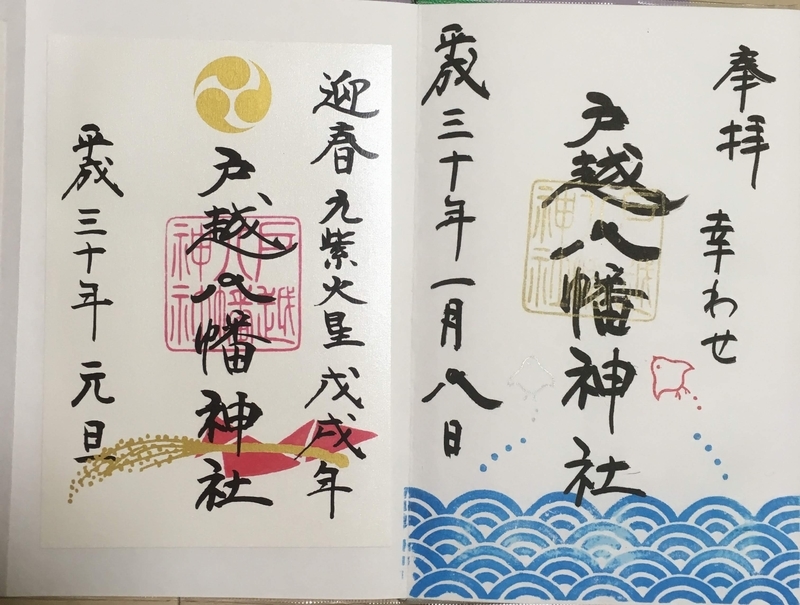 奉拝 幸わせ
戸越八幡神社
戸越八幡神社
平成三十年一月八日
迎春 九紫火星 戊戌年
戸越八幡神社
戸越八幡神社
平成三十年 元旦